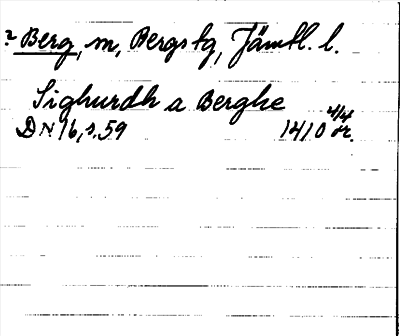 ? Berg, m, Bergs tg, Jämtl. l.
Sighurdh a Berghe
DN 16, s. 59 1410 4/4 or.